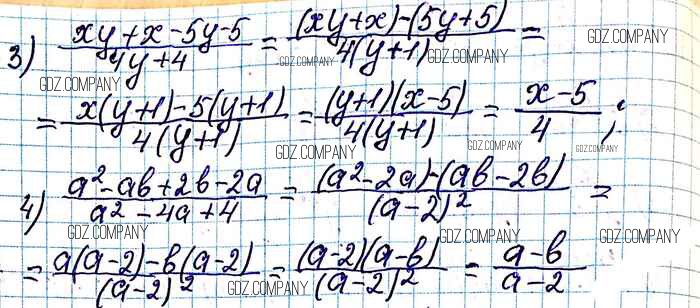 3) (xy+x-5y-5)/(4y+4) = ((xy+x)-(5y+5))/(4(y+1)) =
= (x(y+1)-5(y+1))/(4(y+1)) = ((y+1)(x-5))/(4(y+1)) = (x-5)/4 ;
4) (a²-ab+2b-2a)/(a²-4a+4) = ((a²-2a)-(ab-2b))/((a-2)²) =
= (a(a-2)-b(a-2))/((a-2)²) = ((a-2)(a-b))/((a-2)²) = (a-b)/(a-2)
GDZ.COMPANY
GDZ.COMPANY
GDZ.COMPANY
GDZ.COMPANY
GDZ.COMPANY
GDZ.COMPANY
GDZ.COMPANY
GDZ.COMPANY
GDZ.COMPANY
GDZ.COMPANY
GDZ.COMPANY